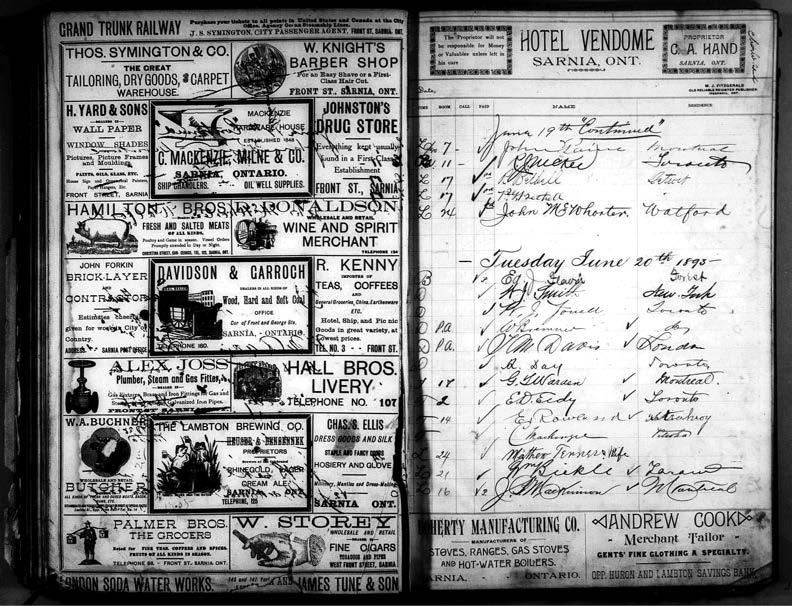 GRAND TRUNK RAILWAY
Purchase your tickets to all points in United States and Canada at the City
Office, Agency Ocean Steamship Lines.
J. S. SYMINGTON, CITY PASSENGER AGENT, FRONT ST. SARNIA, ONT.
THOS. SYMINGTON & CO.
THE GREAT
TAILORING, DRY GOODS, & CARPET
WAREHOUSE.
W. KNIGHT'S
BARBER SHOP
For an Easy Shave or a First-
Class Hair Cut.
FRONT ST. SARNIA, ONT.
H. YARD & SONS
DEALERS IN
WALL PAPER
WINDOW SHADES
Pictures, Picture Frames
and Mouldings,
PAINTS, OILS, GLASS, ETC.
House Sign and Ornamental Painters,
Paper Hangers, Etc.
FRONT STREET, SARNIA
MACKENZIE
HARDWARE HOUSE
ESTABLISHED 1843
C. MACKENZIE, MILNE & CO.
SARNIA, ONTARIO.
SHIP CHANDLERS. OIL WELL SUPPLIES.
JOHNSTON'S
DRUG STORE
Everything kept usually
found in a First-Class
Establishment
FRONT ST., SARNIA
HAMILTON BROS.
FRESH AND SALTED MEATS
OF ALL KINDS,
Poultry and Game in season. Vessel Orders
Promptly attended to Day or Night.
DONALDSON
WHOLESALE AND RETAIL
WINE AND SPIRIT
MERCHANT
TELEPHONE 124
JOHN FORKIN
BRICK-LAYER
AND
CONTRACTOR
Estimates cheerfully
given for work in City or
Country.
ADDRESS SARNIA POST OFFICE
DAVIDSON & GARROCH
DEALERS IN ALL KINDS OF
Wood, Hard and Soft Coal
OFFICE
Cor of Front and George Sts.
SARNIA, - ONTARIO.
TELEPHONE 160.
R. KENNY
IMPORTER OF
TEAS, COFFEES
AND
General Groceries, China, Earthenware
ETC.
Hotel, Ship, and Pic nic
Goods in great variety, at
Lowest prices.
TEL. NO. 3 -- FRONT ST.
ALEX. JOSS
Plumber, Steam and Gas Fitter,
DEALER IN
Galvanized Iron Pipes.
FRONT ST SARNIA
HALL BROS.
LIVERY
TELEPHONE NO. 107
W. A. BUCHNER
WHOLESALE AND RETAIL
BUTCHER
THE LAMBTON BREWING CO.
PROPRIETORS
RHINEGOLD, LAGER
AND
CREAM ALE
SARNIA ONT.
TELEPHONE, 125
CHAS. S. ELLIS
DRESS GOODS AND SILK
STAPLE AND FANCY GOODS
HOSIERY AND GLOVE
Millinery, Mantles and Dress-Making
SARNIA ONT.
PALMER BROS.
THE GROCERS
Noted for FINE TEAS, COFFEES AND SPICES.
FRUITS OF ALL KINDS IN SEASON.
TELEPHONE 98 - FRONT ST. SARNIA ONT.
W. STOREY
WHOLESALE AND RETAIL
DEALER IN
FINE CIGARS
TOBACCOS AND PIPES
WEST FRONT STREET, SARNIA
LONDON SODA WATER WORKS.
JAMES TUNE & SON
The Proprietor will not
be responsible for Money
or Valuables unless left in
his care
HOTEL VENDOME
SARNIA, ONT.
PROPRIETOR
C. A. HAND
SARNIA, ONT.
M. J. FITZGERALD
OLD RELIABLE REGISTER PUBLISHER
Date,
TIME ROOM CALL PAID NAME RESIDENCE
June 19th "Continued"
7 John Montreal
11 Toronto
17 Detroit
17 "
24 John McWhorter Watford
- Tuesday June 20th 1893 -
Forest
Smith New York
Powell Toronto
P.A. do
P.A. J M Davis London
Day Toronto
17 G. T. Warden Montreal
2 E D Eidy Toronto
14 E Rowland Strathroy
Mackenzie
24 Mathew Jenner & Wife
21 Wm Sickle
16 J. Mackinnon Montreal
DOHERTY MANUFACTURING CO.
MANUFACTURERS OF
STOVES, RANGES, GAS STOVES
AND HOT-WATER BOILERS.
SARNIA, - ONTARIO.
ANDREW COOK
Merchant Tailor
GENTS' FINE CLOTHING A SPECIALTY.
OPP. HURON AND LAMBTON SAVINGS BANK